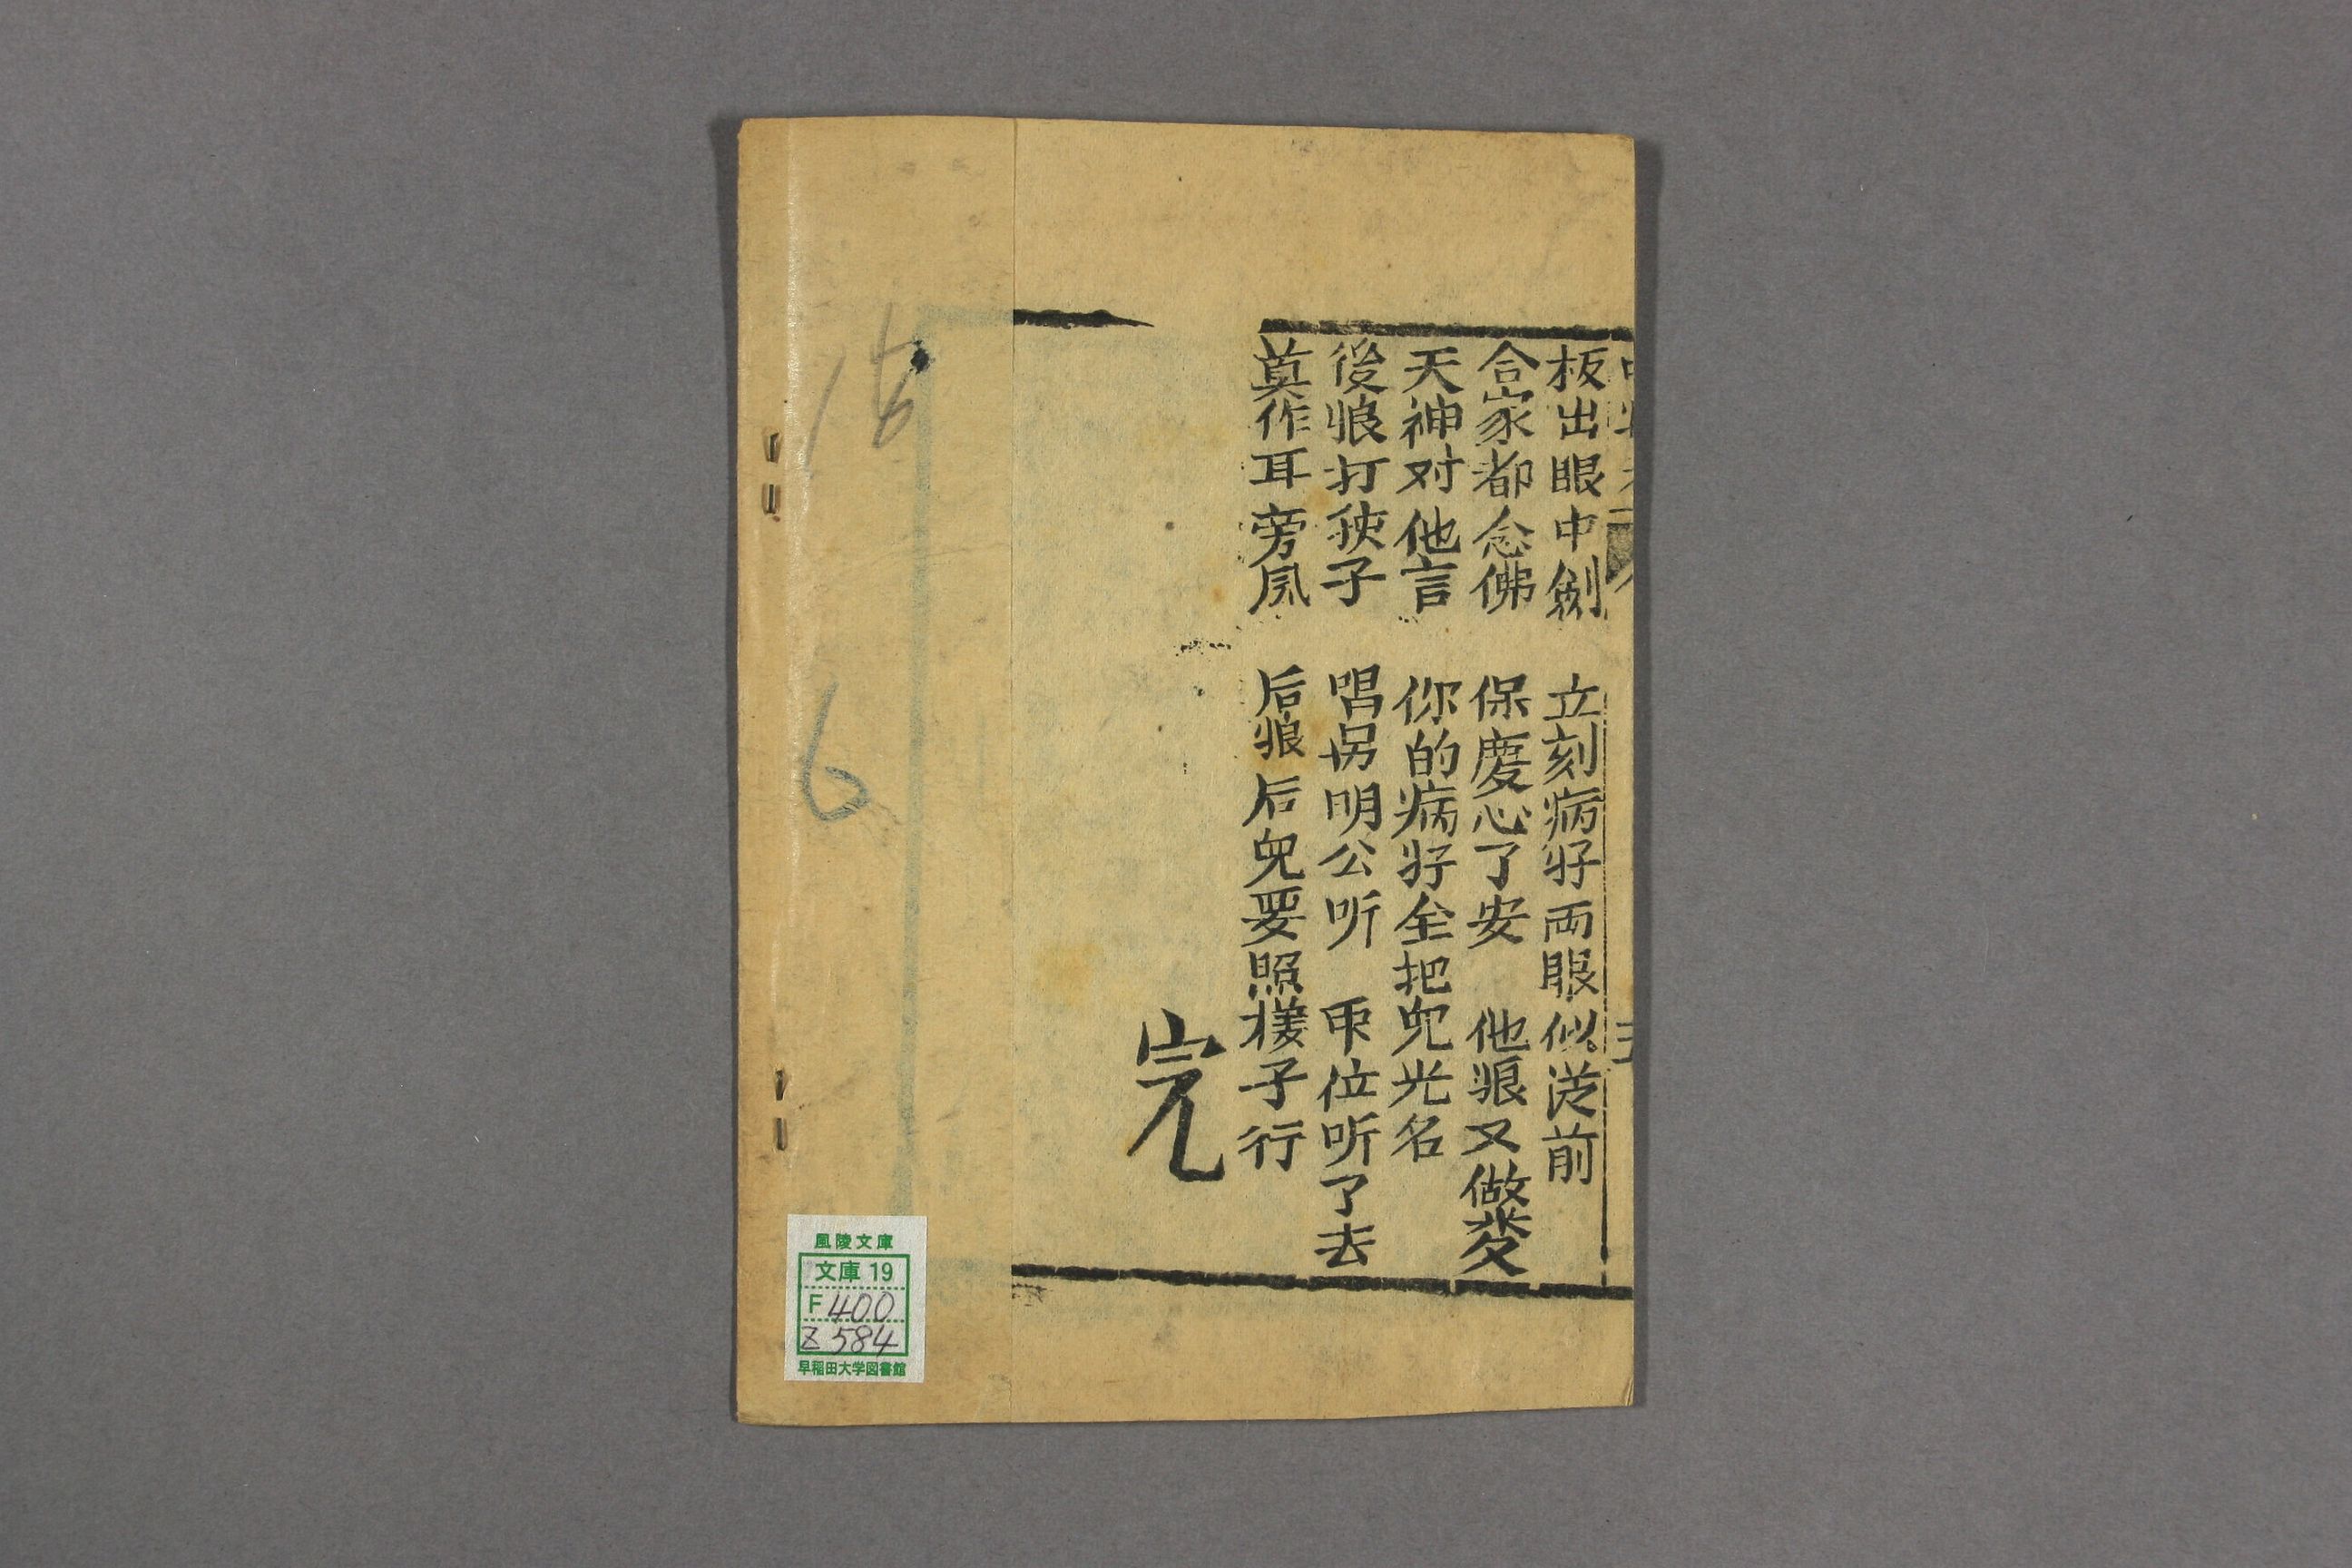 板出眼中劍 立刻病好両眼似從前
合家都念佛 保慶心了安 他狠又做爱
天神对他言 你的病好全把兒光名
後狼打孩子 唱另明公听 甲位听了去
莫作耳旁風 后狼后兒要照樣子行
完
18
6
風陵文庫
文庫 19
F 400
Z 584
早稲田大学図書館